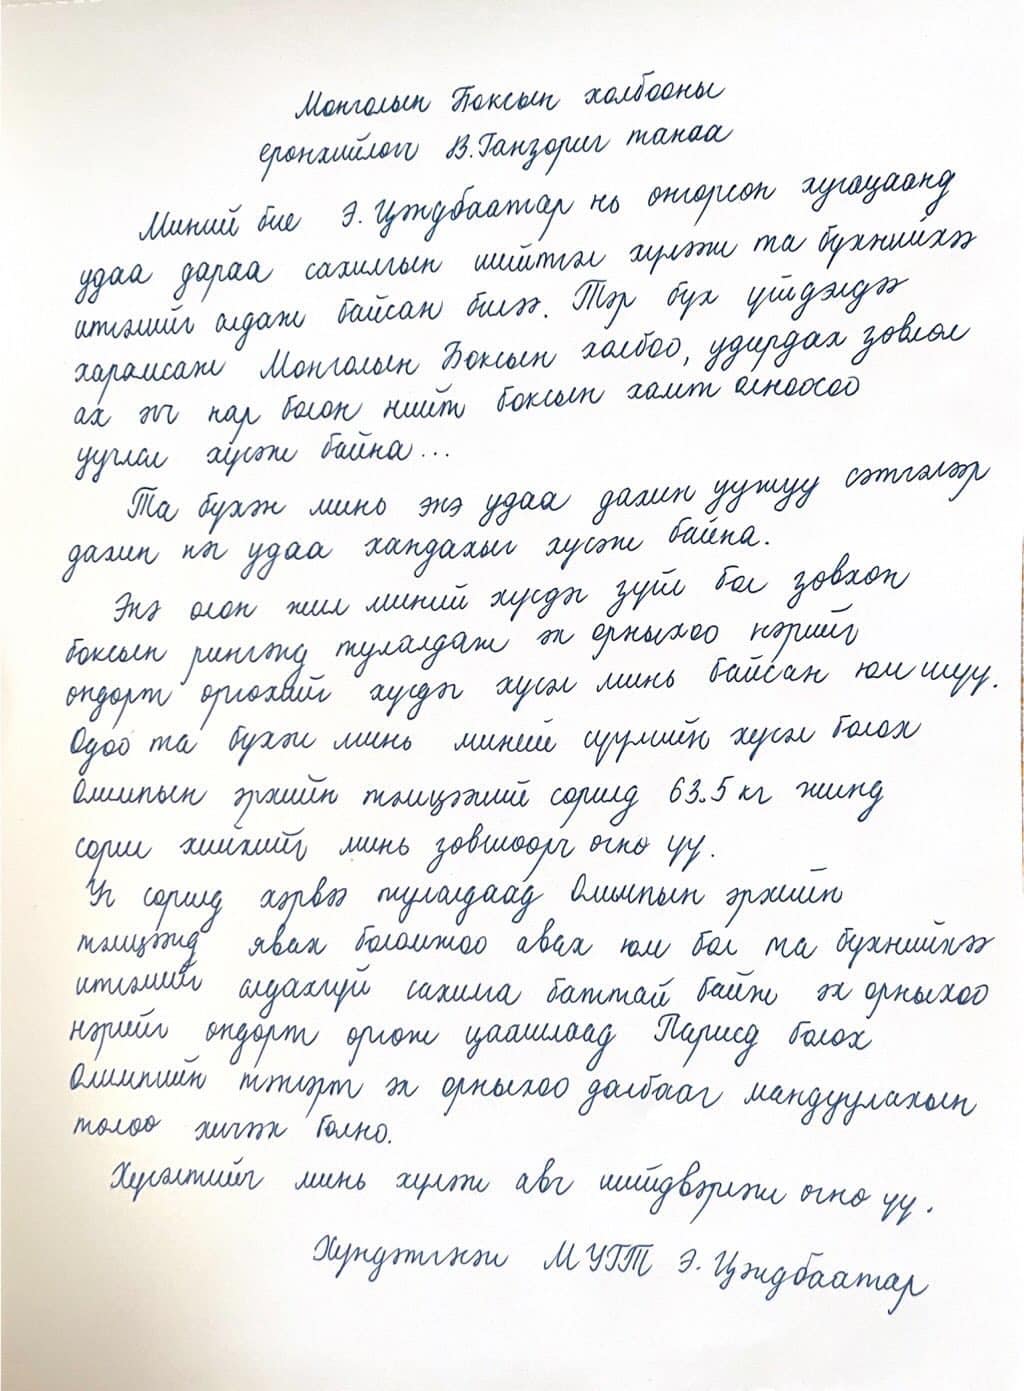 Монголын Боксын холбооны
ерөнхийлөгч В.Ганзориг танаа
Миний бие Э. Цэндбаатар нь өнгөрсөн хугацаанд
удаа дараа сахилгын шийтгэл хүлээж та бүхнийхээ
итгэлийг алдаж байсан билээ. Тэр бүх үйлдэлдээ
харамсаж Монголын Боксын холбоо, удирдах зөвлөл
ах эгч нар болон нийт боксын хамт олноосоо
уучлал хүсэж байна...
Та бүхэн минь энэ удаа дахин уужуу сэтгэлээр
дахин нэг удаа хандахыг хүсэж байна.
Энэ олон жил миний хүсдэг зүйл бол зөвхөн
боксын рингэнд тулалдаж эх орныхоо нэрийг
өндөрт өргөхийг хүсдэг хүсэл минь байсан юм шүү.
Одоо та бүхэн минь миний сүүлийн хүсэл болох
Олимпын эрхийн тэмцээний сорилд 63.5 кг жинд
сорил хийхийг минь зөвшөөрч өгнө үү.
Уг сорилд хэрвээ тулалдаад Олимпын эрхийн
тэмцээнд явах боломжоо авах юм бол та бүхнийхээ
итгэлийг алдахгүй сахилга баттай байж эх орныхоо
нэрийг өндөрт өргөж цаашлаад Парисд болох
Олимпийн тэнгэрт эх орныхоо далбааг мандуулахын
төлөө хичээх болно.
Хүсэлтийг минь хүлээж авч шийдвэрлэж өгнө үү.
Хүндэтгэсэн МУГТ Э. Цэндбаатар